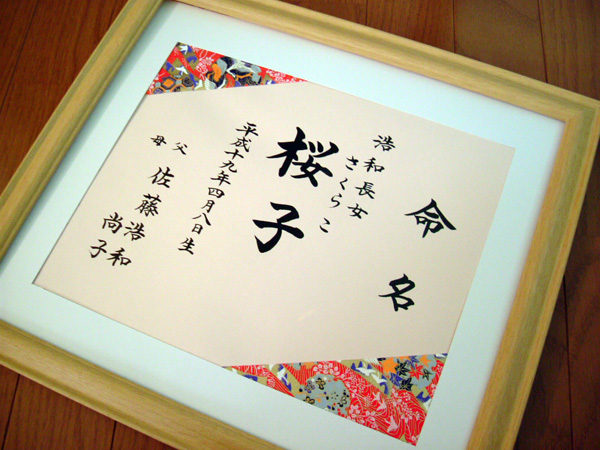 命名
浩和長女
さくらこ
桜子
平成十九年四月八日生
父 佐藤浩和
母 尚子